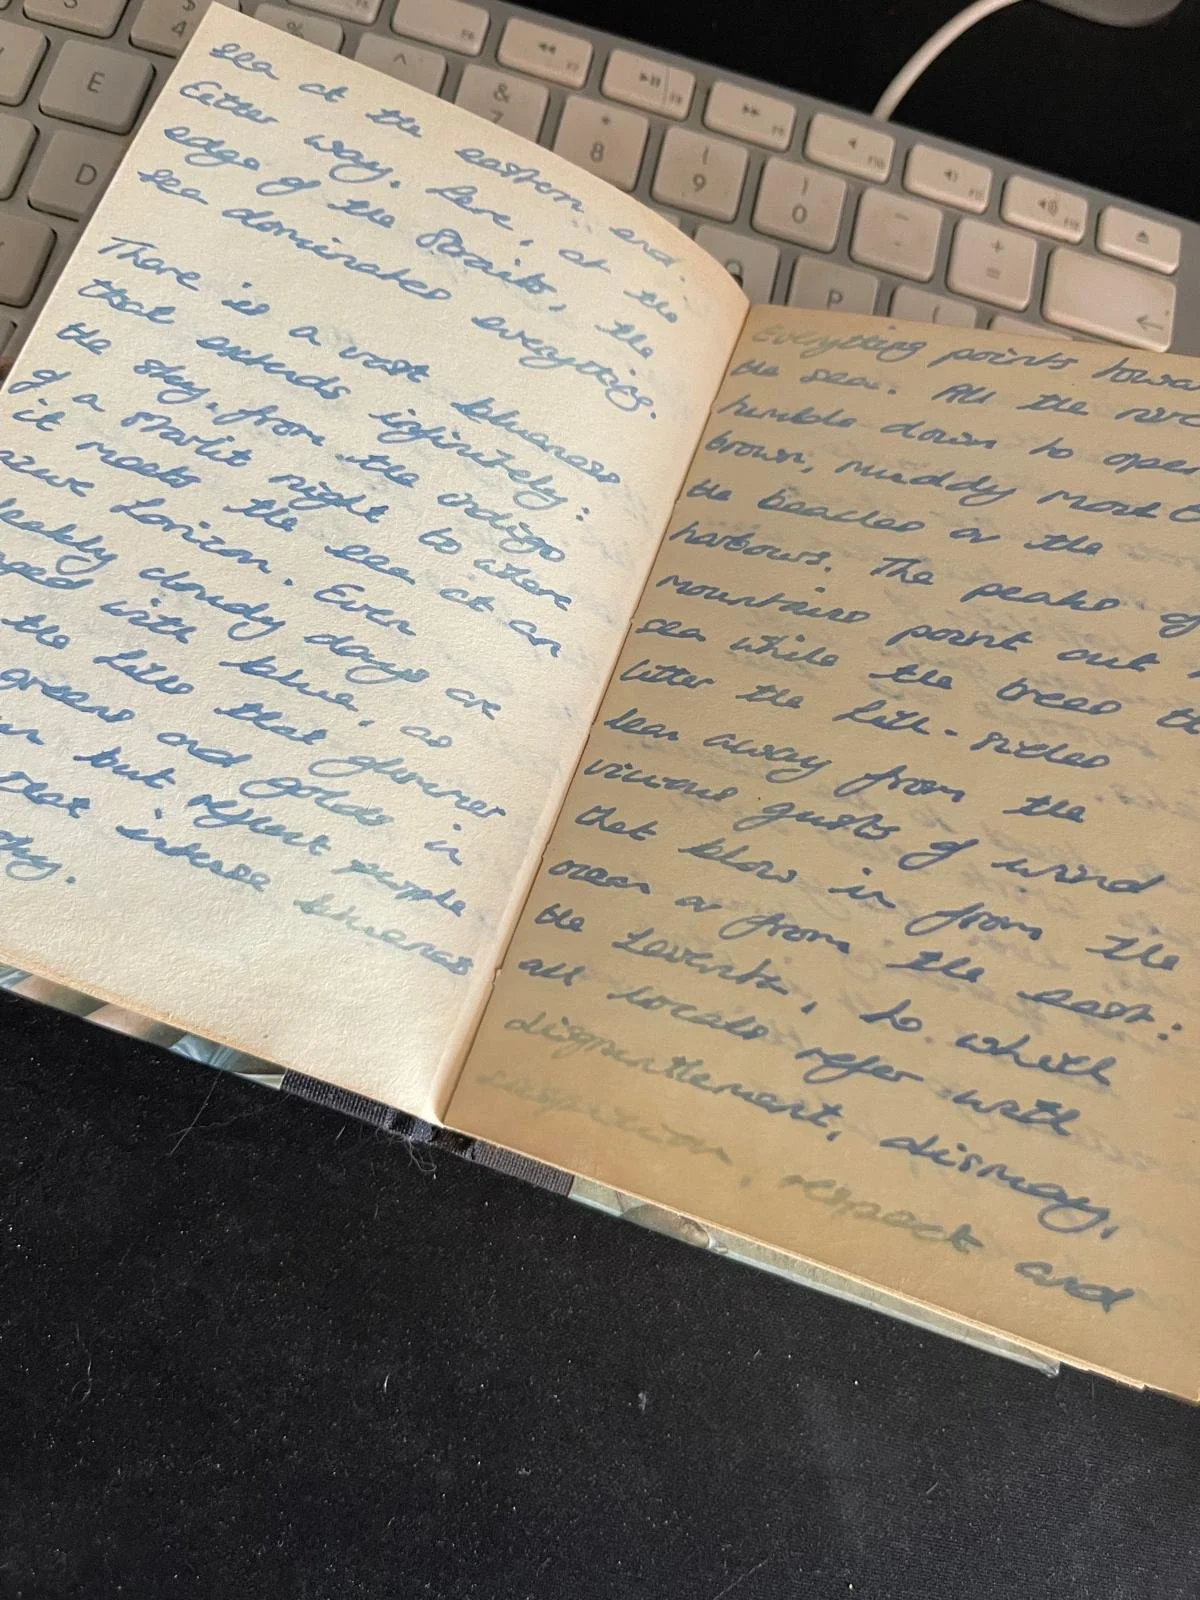 sea at the eastern end.
Either way. Here, at the
edge of the Straits, the
sea dominates everything.
There is a vast blueness
that extends infinitely:
the sky, from the indigo
of a starlit night to where
it meets the sea at an
azure horizon. Even
bleakly cloudy days are
with blue, as
the hills that glimmer
greens and golds in
but reflect purple
that intense blueness
sky.
Everything points towa
the sea. All the
tumble down to ope
brown, muddy
the beaches or the
harbours. The peaks of
mountains point out
sea while the trees
litter the hill-sides
lean away from the
vicious gusts of wind
that blow in from the
ocean or from the east:
the Levante, to which
all locals refer with
disgruntlement, dismay,
suspicion, respect and
E
D
&
7
*
8
(
9
)
0
+
=
P